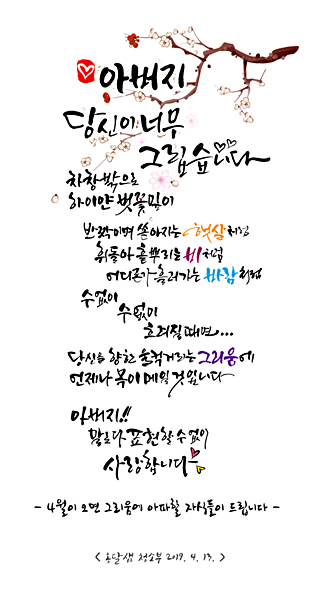 아버지
당신이 너무
그립습니다
차창밖으로
하이얀 벚꽃잎이
반짝이며 쏟아지는 햇살처럼
휘돌아 흩뿌리는 비처럼
어디론가 흘러가는 바람처럼
수없이
수없이
흐려질때면...
당신을 향한 울컥거리는 그리움에
언제나 목이 메일 것입니다
아버지!!
말로다 표현할 수 없이
사랑합니다
- 4월이 오면 그리움에 아파할 자식들이 드립니다 -
< 옹달샘 청소부 2019. 4. 13. >